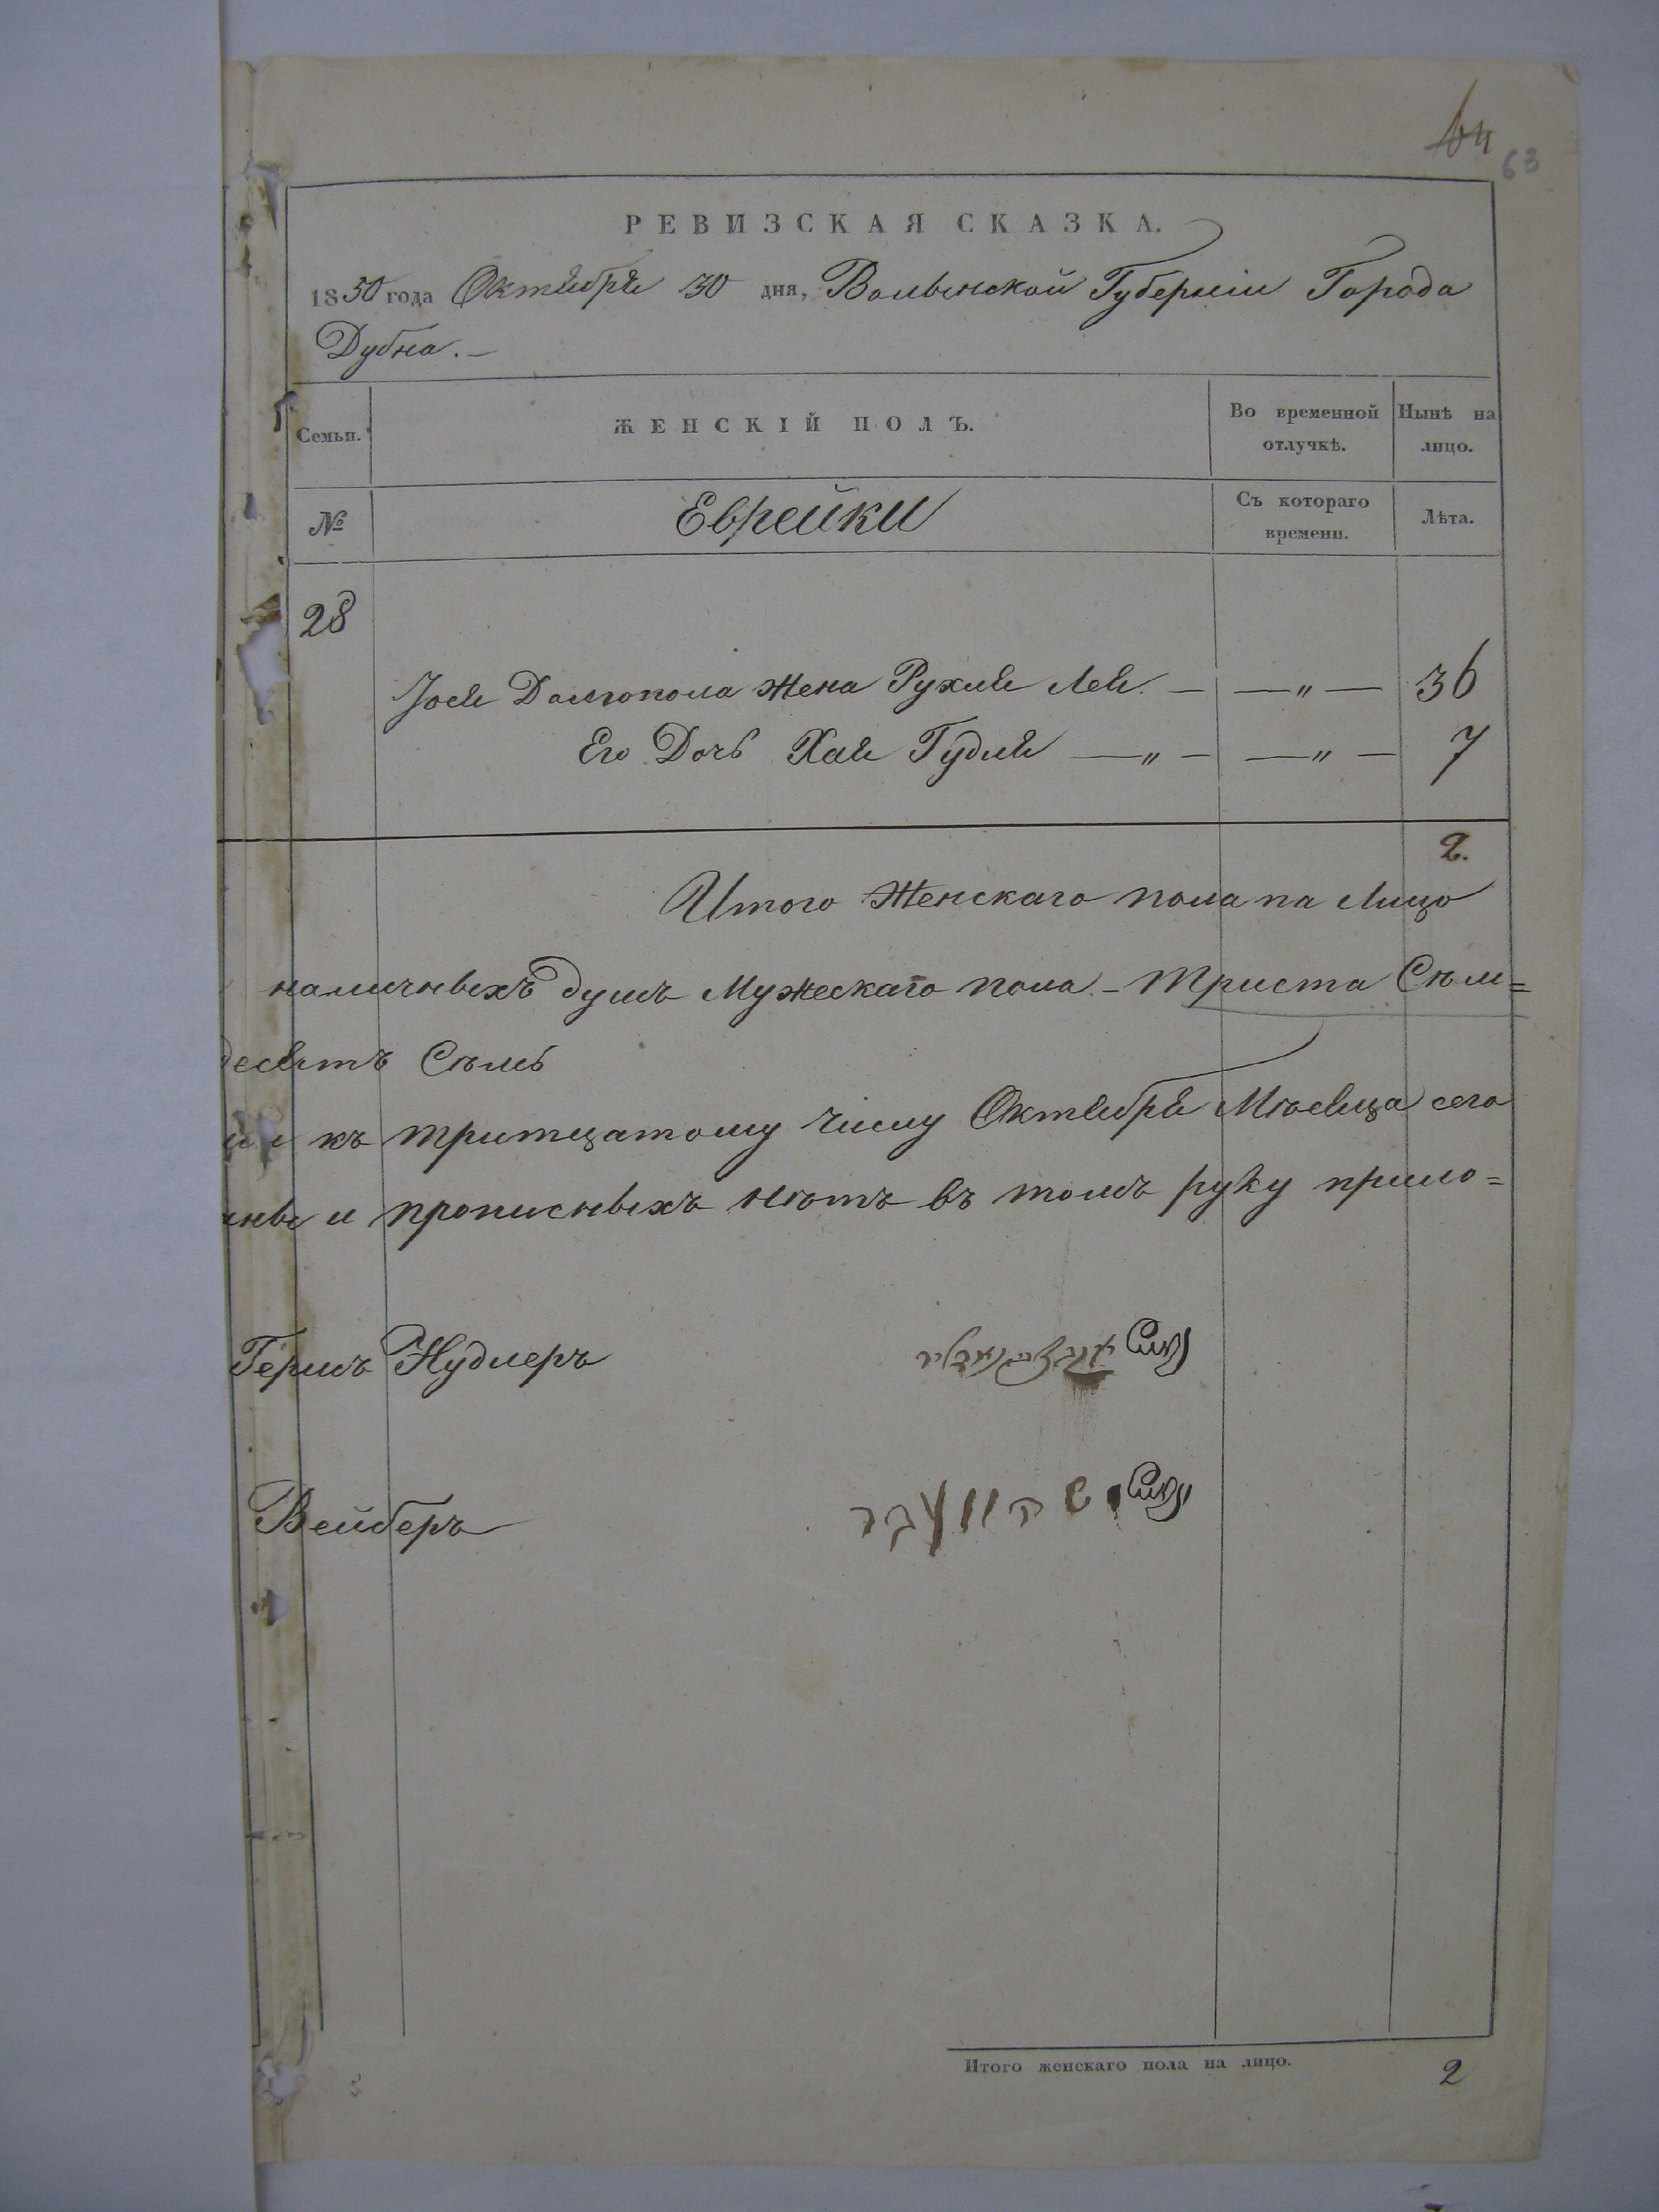 64
63
РЕВИЗСКАЯ СКАЗКА.
1850 года Октября 30 дня, Волынской Губерніи Города
Дубна.—
Семьи.
ЖЕНСКІЙ ПОЛЪ.
Во временной отлучкѣ.
Нынѣ на лицо.
№
Еврейки
Съ котораго времени.
Лѣта.
28
Іося Долгопола жена Рухля Лея. — —„— 36
Его Дочь Хая Гудля —„— —„— 7
2.
Итого Женскаго пола на Лицо
наличныхъ душъ Мужескаго пола — триста Сѣм=
десятъ Сѣмь
къ тритцатому числу Октября Мѣсяца сего
и прописныхъ нѣтъ въ томъ руку прило=
Гершъ Нудлеръ
Вейберъ
Итого женскаго пола на лицо. 2